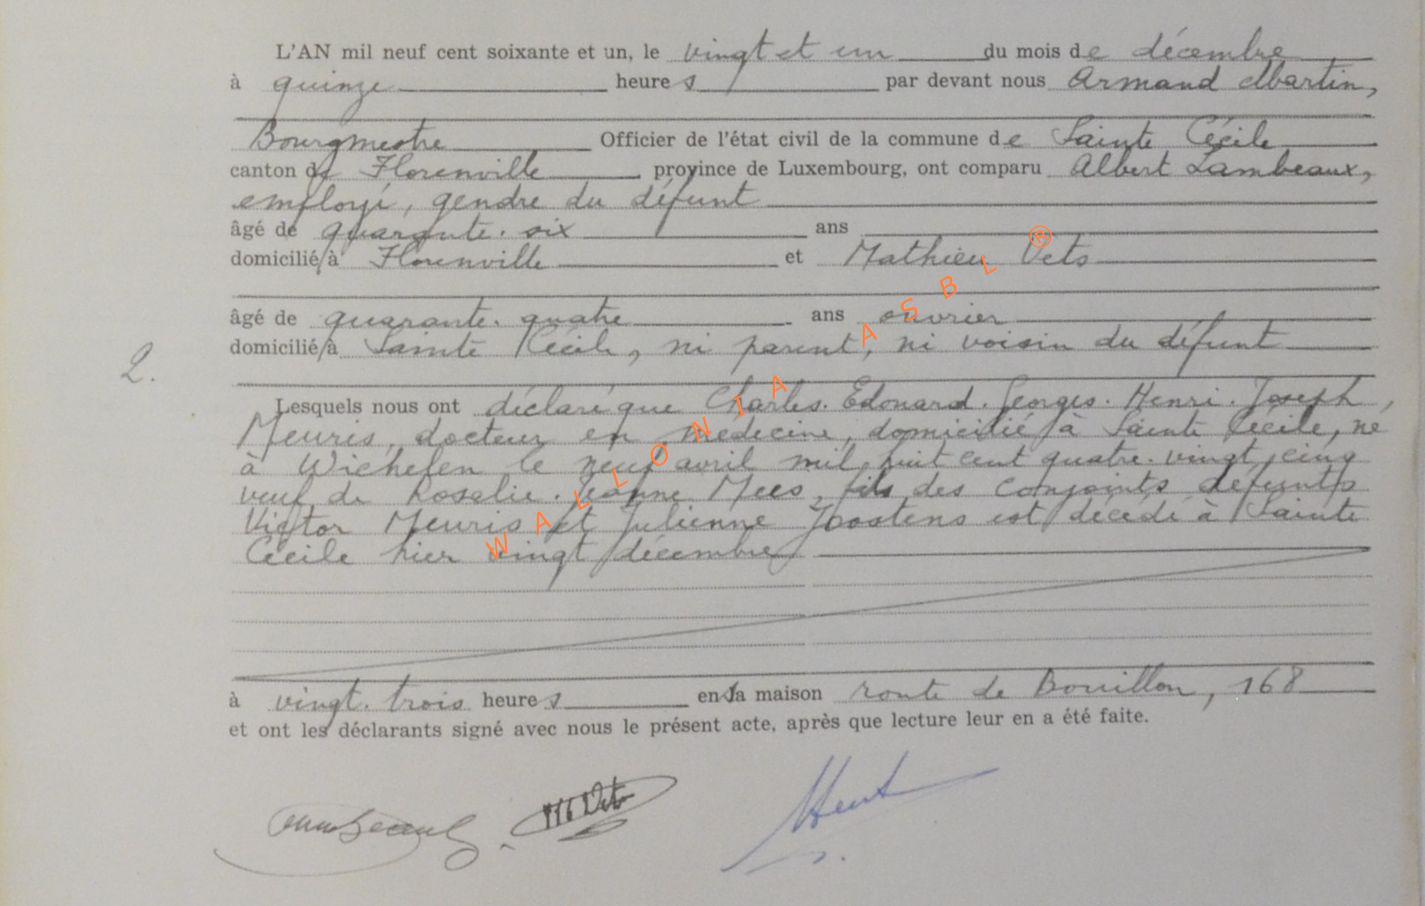 L'AN mil neuf cent soixante et un, le vingt et un du mois de décembre
à quinze heures par devant nous Armand Martin,
Bourgmestre Officier de l'état civil de la commune de Sainte Cécile
canton de Florenville province de Luxembourg, ont comparu Albert Lambeaux,
employé, gendre du défunt
âgé de quarante-six ans
domicilié à Florenville et Mathieu Vets
âgé de quarante-quatre ans ouvrier
domicilié à Sainte Cécile, ni parent, ni voisin du défunt
2.
Lesquels nous ont déclaré que Charles-Edouard-Georges-Henri-Joseph
Meuris, docteur en médecine, domicilié à Sainte Cécile, né
à Wichelen le neuf avril mil huit cent quatre-vingt cinq
veuf de Rosalie-Jeanne Mees, fils des conjoints défunts
Victor Meuris et Julienne Joostens est décédé à Sainte
Cécile hier vingt décembre
à vingt-trois heures en sa maison route de Bouillon, 168
et ont les déclarants signé avec nous le présent acte, après que lecture leur en a été faite.
M Vets
WALLONIA ASBL ®